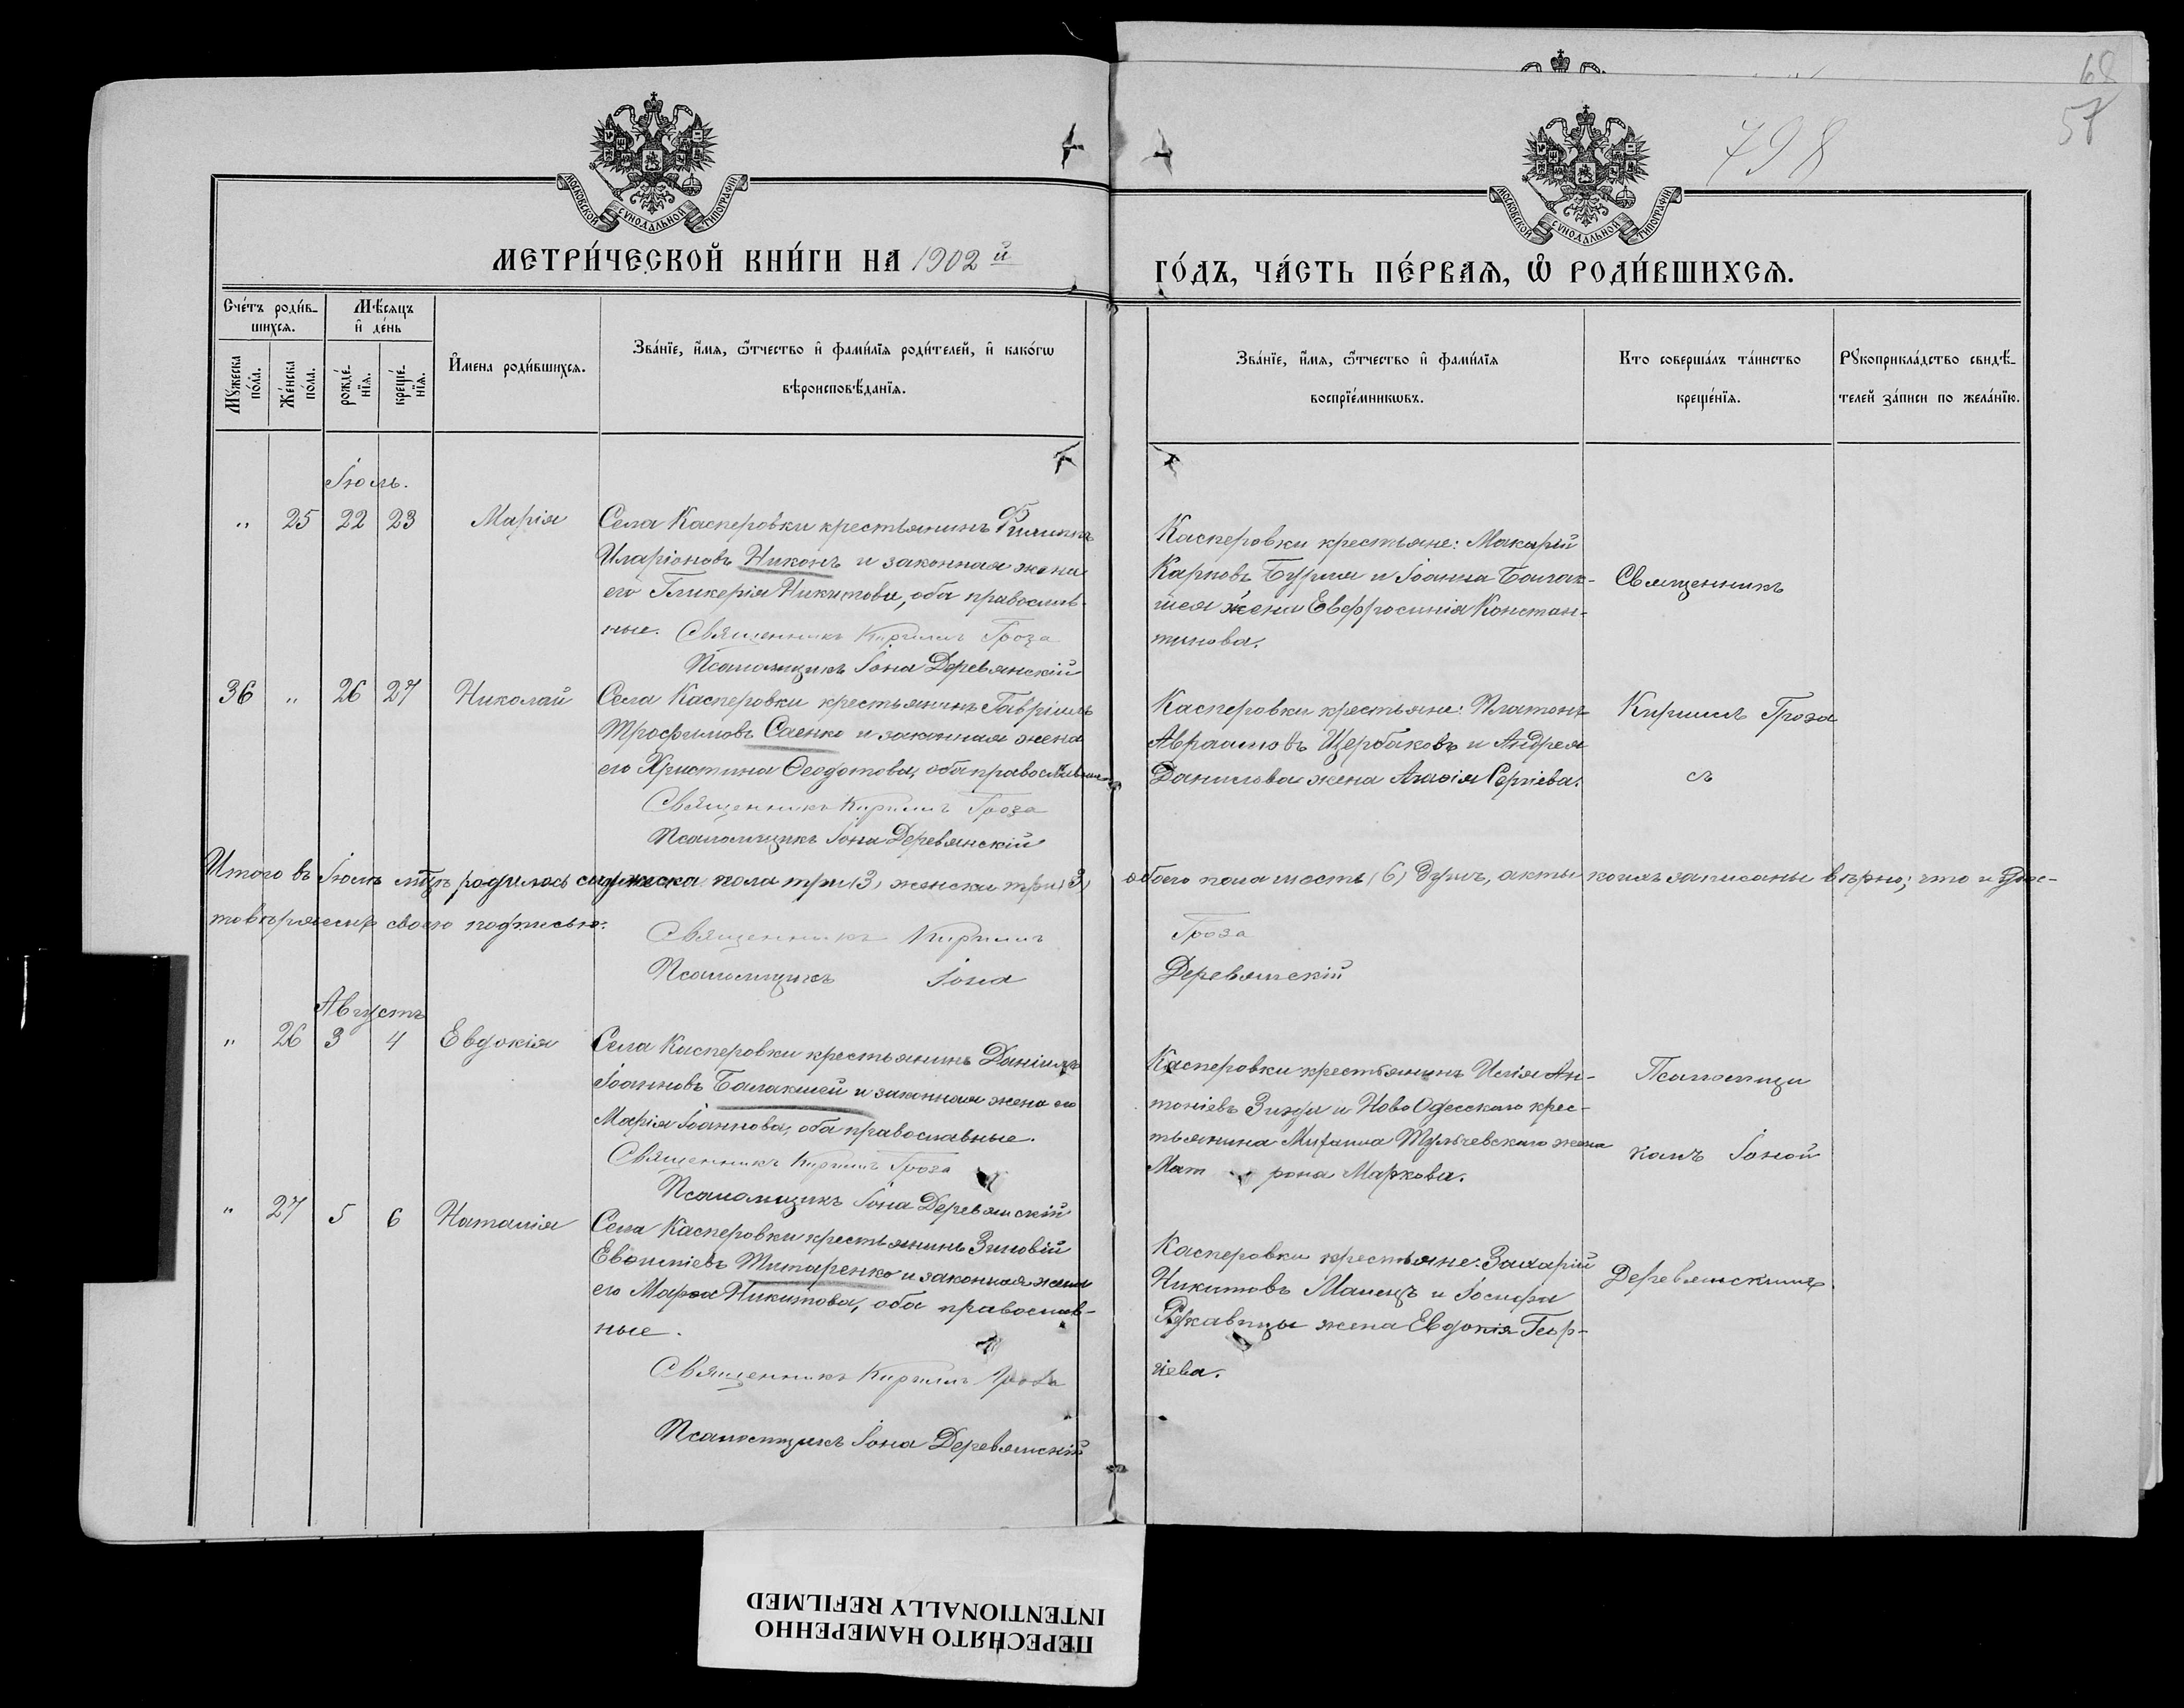 68
57
798
МОСКОВСКОЙ СѴНОДАЛЬНОЙ ТИПОГРАФІИ
МОСКОВСКОЙ СѴНОДАЛЬНОЙ ТИПОГРАФІИ
МЕТРИ́ЧЕСКОЙ КНИ́ГИ НА 1902 й
ГО́ДЪ, ЧА́СТЬ ПЕ́РВАѦ, Ѡ҆ РОДИ́ВШИХСѦ.
Сче́тъ роди́в-
шихсѧ.
Мѣ́сѧцъ
и҆ де́нь
Мꙋ́жеска
по́ла.
Же́нска
по́ла.
рожде́-
нїѧ.
креще́-
нїѧ.
И҆мена роди́вшихсѧ.
Зва́нїе, и҆́мѧ, ѻ҆́тчество и҆ фами́лїѧ роди́телей, и҆ како́гѡ
вѣроисповѣ́данїѧ.
Зва́нїе, и҆́мѧ, ѻ҆́тчество и҆ фами́лїѧ
воспрїе́мникѡвъ.
Кто соверша́лъ та́инство
креще́нїѧ.
Рꙋкоприкла́дство свидѣ́-
телей за́писи по жела́нїю.
Іюль.
" 25 22 23 Марія
Села Касперовки крестьянинъ Филиппъ
Иларіоновъ Никонъ и законная жена
его Гликерія Никитова, оба православ-
ные. Священникъ Кириллъ Гроза
Псаломщикъ Іона Деревянскій
Касперовки крестьяне: Макарій
Карповъ Бурлм и Іоанна Балак-
шея жена Евфросинія Констан-
тинова.
Священникъ
36 " 26 27 Николай
Села Касперовки крестьянинъ Гавріилъ
Трофимовъ Саенко и законная жена
его Христина Ѳеодотова, оба православные
Священникъ Кириллъ Гроза
Псаломщикъ Іона Деревянскій
Касперовки крестьяне: Платонъ
Авраамовъ Щербаковъ и Андрея
Данилова жена Сергіева.
Кириллъ Гроза
съ
Итого въ Іюлѣ мцѣ родилось мужеска пола три (3) женска три (3)
обоего пола шесть (6) душъ, акты коихъ записаны вѣрно; что и удос-
товѣряемъ своею подписью.
Священникъ Кириллъ
Гроза
Псаломщикъ Іона
Деревянскій
Августъ
" 26 3 4 Евдокія
Села Касперовки крестьянинъ Даніилъ
Іоанновъ Балакшей и законная жена его
Марія Іоаннова, оба православные.
Священникъ Кириллъ Гроза
Псаломщикъ Іона Деревянскій
Касперовки крестьянинъ Илія Ан-
тоніевъ и Ново Одесскаго крес-
тьянина Михаила Тульчевскаго жена
Мат рона Маркова.
Псаломщи
комъ Іоной
" 27 5 6 Наталія
Села Касперовки крестьянинъ Зиновій
Евфиміевъ Титаренко и законная жена
его Марѳа Никитова, оба православ-
ные.
Священникъ Кириллъ Гроза
Псаломщикъ Іона Деревянскій
Касперовки крестьяне: Захарій
Никитовъ и Іосифа
Рукавицы жена Евдокія Геор-
гіева.
Деревянскимъ.
ПЕРЕСНЯТО НАМЕРЕННО
INTENTIONALLY REFILMED